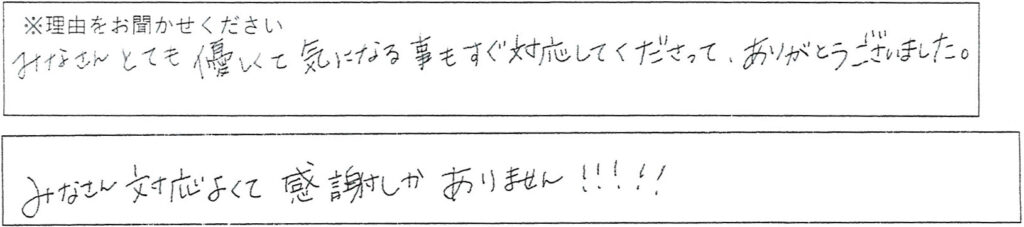 ※理由をお聞かせください
みなさんとても優しくて気になる事もすぐ対応してくださって、ありがとうございました。
みなさん対応よくて感謝しかありません!!!!!